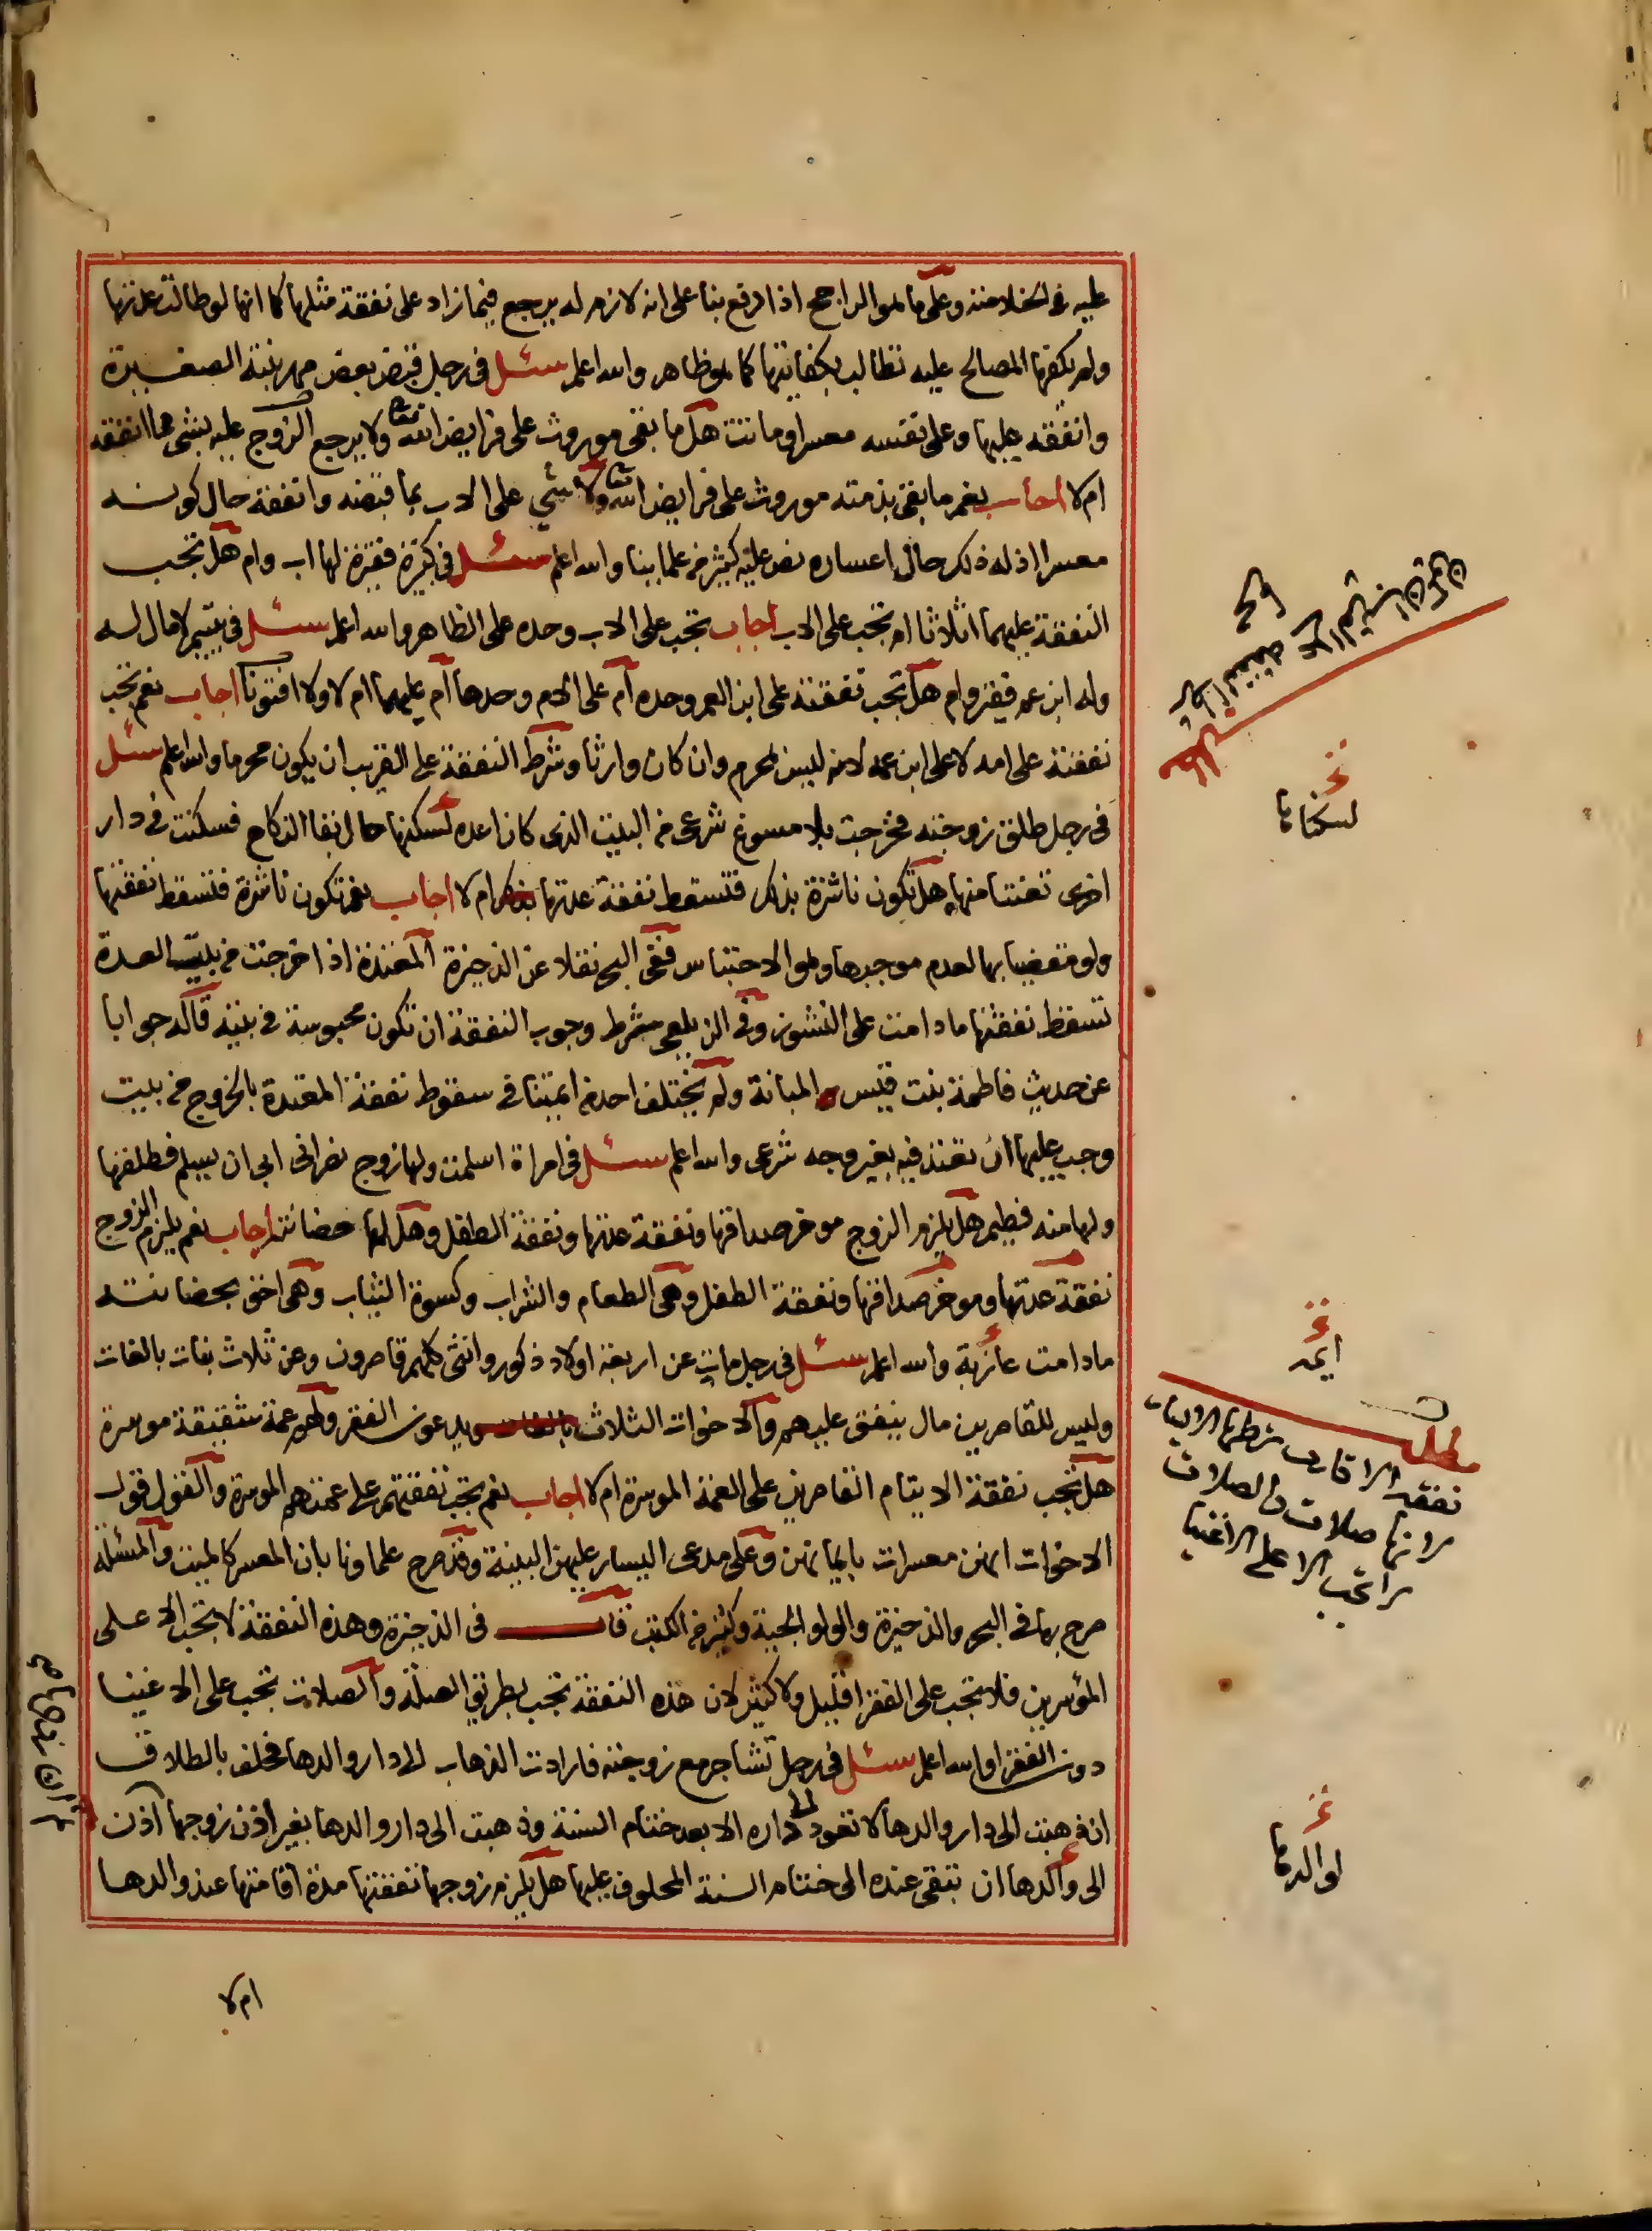 عليه في الخلاصة وعلى ما هو الراجح اذا دفع بنا على انه لازم له يرجع فيما زاد على نفقة مثلها كما انها لو طالت عدتها
ولم يكفها المصالح عليه تطالب بكفايتها كما هو ظاهر والله اعلم سئل في رجل قبض بعض مهر بنته الصغيرة
وانفقه عليها وعلى نفسه معسرا وماتت هل ما بقي موروث على فرايض الله تعالى ولا يرجع الزوج عليه بشئ مما انفقه
ام لا اجاب نعم ما بقي بذمته موروث على فرايض الله تعالى ولا شئ على الاب بما قبضه وانفقه حال كونه
معسرا اذ له ذلك حال اعساره نص عليه كثير من علماينا والله اعلم سئل في كبيرة فقيرة لها اب وام هل تجب
النفقة عليهما اثلاثا ام تجب على الاب اجاب تجب على الاب وحده على الظاهر والله اعلم سئل في يتيم لا مال له
وله ابن عم فقير وام هل تجب نفقته على ابن العم وحده ام على الام وحدها ام عليهما ام لا ولا افتونا اجاب نعم تجب
نفقته على امه لا على ابن عمه لانه ليس بمحرم وان كان وارثا وشرط النفقة على القريب ان يكون محرما والله اعلم سئل
في رجل طلق زوجته فخرجت بلا مسوغ شرعي من البيت الذي كان اعده لسكنها حال بقا النكاح فسكنت في دار
اخرى تعنتا منها هل تكون ناشزة بذلك فتسقط نفقة عدتها بذلك ام لا اجاب نعم تكون ناشزة فتسقط نفقتها
ولو مقضيا بها لعدم موجبها وهو الاحتباس ففي البحر نقلا عن الذخيرة المعتدة اذا خرجت من بيت العدة
تسقط نفقتها ما دامت على النشوز وفي الزيلعي شرط وجوب النفقة ان تكون محبوسة في بيته قاله جوابا
عن حديث فاطمة بنت قيس المبانة ولم يختلف احد من ايمتنا في سقوط نفقة المعتدة بالخروج من بيت
وجب عليها ان تعتد فيه بغير وجه شرعي والله اعلم سئل في امراة اسلمت ولها زوج نصراني ابى ان يسلم فطلقها
ولها منه فطيم هل يلزم الزوج موخر صداقها ونفقة عدتها ونفقة الطفل وهل لها حضانته اجاب نعم يلزم الزوج
نفقة عدتها وموخر صداقها ونفقة الطفل وهي الطعام والشراب وكسوة الثياب وهي احق بحضانته
ما دامت عازبة والله اعلم سئل في رجل مات عن اربعة اولاد ذكور وانثى كلهم قاصرون وعن ثلاث بنات بالغات
وليس للقاصرين مال ينفق عليهم والاخوات الثلاث يدعون الفقر ولهم عمة شقيقة موسرة
هل تجب نفقة الايتام القاصرين على العمة الموسرة ام لا اجاب نعم تجب نفقتهم على عمتهم الموسرة والقول قول
الاخوات انهن معسرات بايمانهن وعلى مدعي اليسار عليهن البينة وقد صرح علماونا بان المعسر كالميت والمسئلة
صرح بها في البحر والذخيرة والولوالجية وكثير من الكتب قال في الذخيرة وهذه النفقة لا تجب الا على
الموسرين فلا تجب على الفقرا قليل ولا كثير لان هذه النفقة تجب بطريق الصلة والصلات تجب على الاغنيا
دون الفقرا والله اعلم سئل في رجل تشاجر مع زوجته فارادت الذهاب الى دار والدها فحلف بالطلاق
ان ذهبت الى دار والدها لا تعود الى داره الا بعد ختام السنة وذهبت الى دار والدها بغير اذن زوجها اذن
الى والدها ان تبقى عنده الى ختام السنة المحلوف عليها هل يلزم زوجها نفقتها مدة اقامتها عند والدها
ام لا
لسكناها
ايمة
مطلب
نفقة الاقارب
لانها صلات والصلات
لا تجب الا على الاغنيا
لوالدها